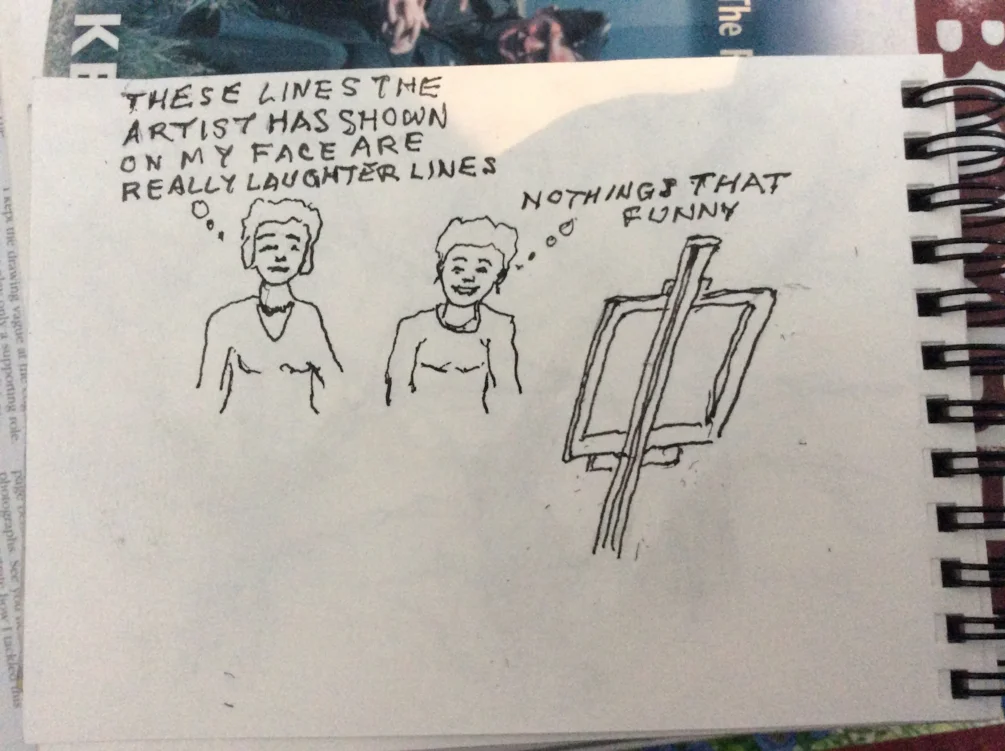 THESE LINES THE
ARTIST HAS SHOWN
ON MY FACE ARE
REALLY LAUGHTER LINES
NOTHINGS THAT
FUNNY
KE
The
B
I kept the drawing vague at the
only a supporting role.
photographs. See you
how I tackled this